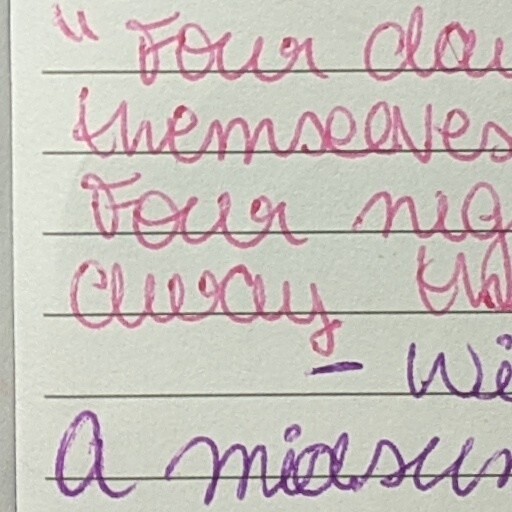 " Four day
themseaves
Four nig
away th
- Wi
A midsum